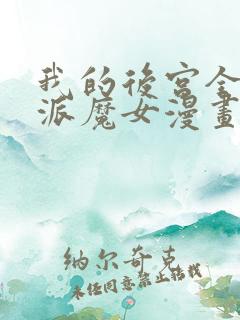 我的後宮全
派魔女漫畫
纳尔奇克
未经同意禁止转载